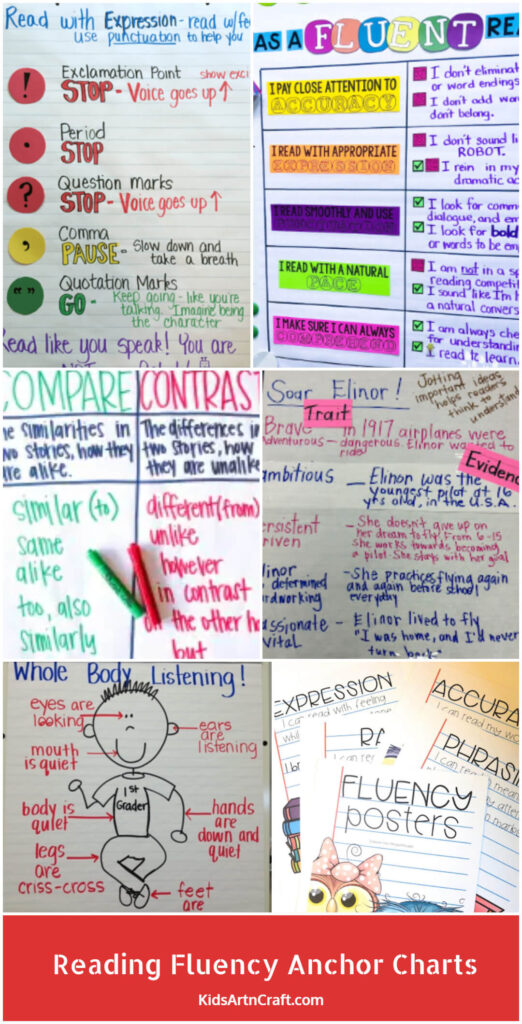 Read with Expression - read w/fe
use punctuation to help you
! Exclamation Point show exci
STOP - Voice goes up ↑
. Period
STOP
? Question marks
STOP - Voice goes up ↑
, Comma
PAUSE - Slow down and
take a breath
" " Quotation Marks
GO - Keep going - like you're
talking. Imagine being
the character
Read like you speak! You are
AS A FLUENT RE
I PAY CLOSE ATTENTION TO
ACCURACY
I don't eliminat
or word endings
I don't add wor
don't belong.
I READ WITH APPROPRIATE
EXPRESSION
I don't sound li
ROBOT.
I rein in my
dramatic ac
I READ SMOOTHLY AND USE
I look for comm
dialogue, and em
I look for bold
or words to be em
I READ WITH A NATURAL
PACE
I am not in a sp
reading competi
I sound like I'm h
a natural convers
I MAKE SURE I CAN ALWAYS
COMPREHEND
I am always che
for understandin
I read to learn.
COMPARE
he similarities in
two stories, how they
are alike.
similar (to)
same
alike
too, also
similarly
CONTRAST
The differences in
two stories, how
they are unalike
different (from)
unlike
however
in contrast
on the other h
but
Soar Elinor!
Jotting
important ideas
helps readers
think to
understand
Trait
Evidenc
Brave - in 1917 airplanes were
adventurous - dangerous. Elinor wanted to
ride!
ambitious - Elinor was the
youngest pilot at 16
yrs old, in the U.S.A.
rsistent - She doesn't give up on
riven her dream to fly! From 6-15
she works towards becoming
a pilot. She stays with her goal
linor - She practices flying again
determined and again before school
ardworking everyday
assionate - Elinor lived to fly
vital "I was home, and I'd never
turn back"
Whole Body Listening!
eyes are
looking
ears
are
listening
mouth
is quiet
1st
Grader
body is
quiet
hands
are
down and
quiet
legs
are
criss-cross
feet
are
EXPRESSION
I can read with feeling
ACCURA
I can read my wo
RA
PHRASIN
FLUENCY
posters
Reading Fluency Anchor Charts
KidsArtnCraft.com